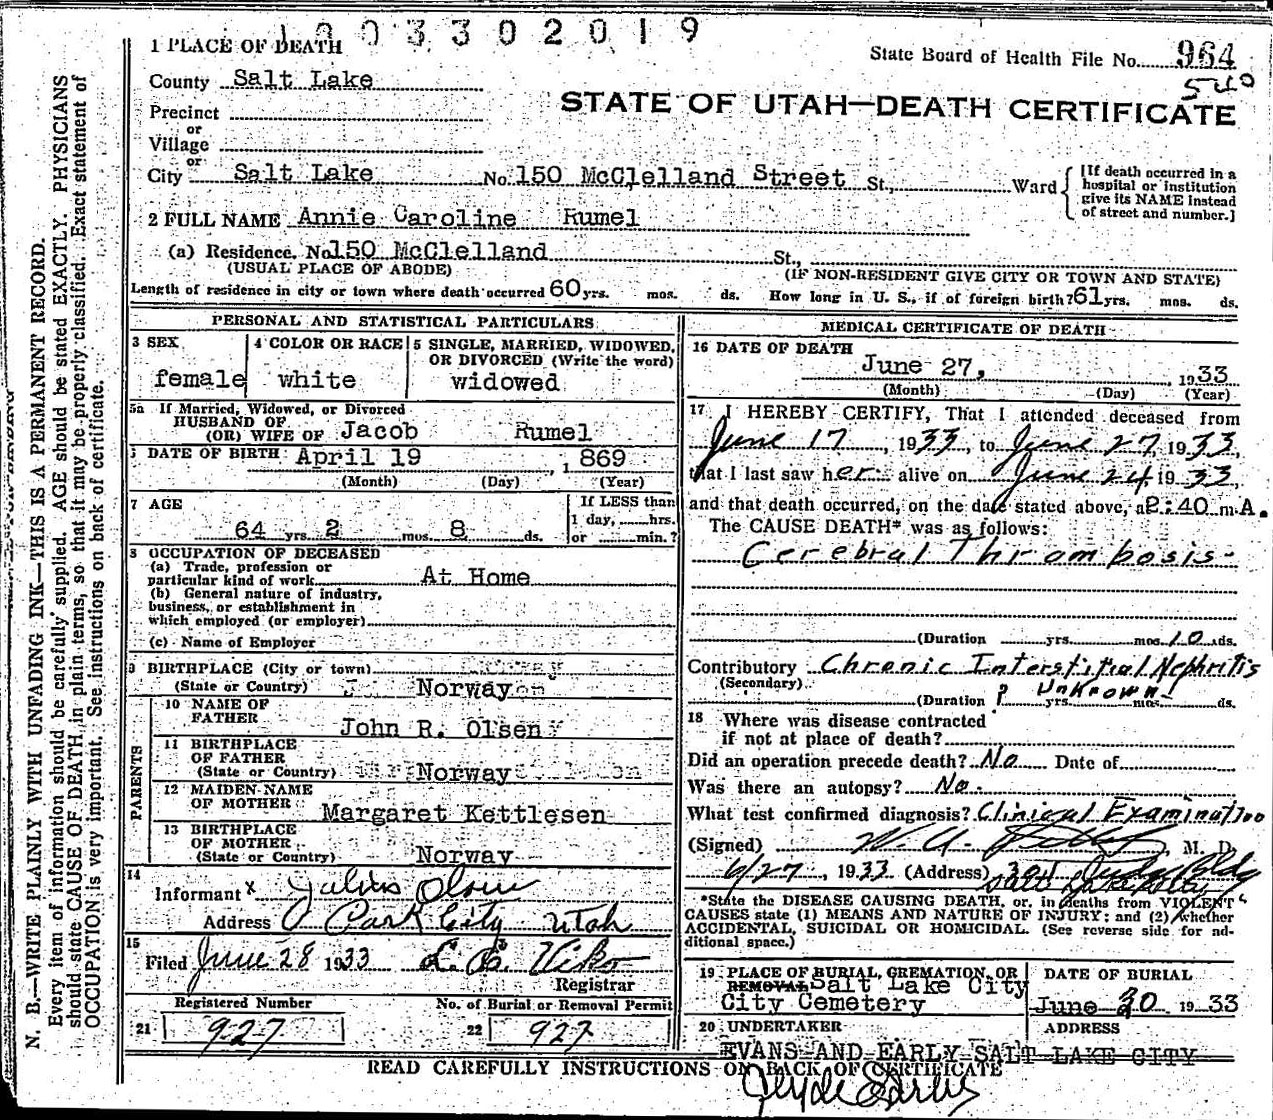 1003302019
1 PLACE OF DEATH
State Board of Health File No. 964
540
County Salt Lake
STATE OF UTAH—DEATH CERTIFICATE
Precinct
or
Village
or
City Salt Lake No. 150 McClelland Street St., Ward
[If death occurred in a hospital or institution give its NAME instead of street and number.]
2 FULL NAME Annie Caroline Rumel
(a) Residence. No. 150 McClelland St.,
(USUAL PLACE OF ABODE) (IF NON-RESIDENT GIVE CITY OR TOWN AND STATE)
Length of residence in city or town where death occurred 60 yrs. mos. ds. How long in U. S., if of foreign birth? 61 yrs. mos. ds.
PERSONAL AND STATISTICAL PARTICULARS
3 SEX
female
4 COLOR OR RACE
white
5 SINGLE, MARRIED, WIDOWED, OR DIVORCED (Write the word)
widowed
5a If Married, Widowed, or Divorced
HUSBAND OF
(OR) WIFE OF Jacob Rumel
DATE OF BIRTH April 19, 1869
(Month) (Day) (Year)
7 AGE
64 yrs. 2 mos. 8 ds.
If LESS than
1 day, hrs.
or min.?
8 OCCUPATION OF DECEASED
(a) Trade, profession or
particular kind of work At Home
(b) General nature of industry,
business, or establishment in
which employed (or employer)
(c) Name of Employer
9 BIRTHPLACE (City or town)
(State or Country) Norway
PARENTS
10 NAME OF
FATHER John R. Olsen
11 BIRTHPLACE
OF FATHER
(State or Country) Norway
12 MAIDEN NAME
OF MOTHER Margaret Kettlesen
13 BIRTHPLACE
OF MOTHER
(State or Country) Norway
14
Informant x Julius Olsen
Address Park City Utah
15
Filed June 28 1933 L. E. Viko
Registrar
Registered Number
21 927
No. of Burial or Removal Permit
22 927
MEDICAL CERTIFICATE OF DEATH
16 DATE OF DEATH
June 27, 1933
(Month) (Day) (Year)
17 I HEREBY CERTIFY, That I attended deceased from
June 17, 1933, to June 27, 1933,
that I last saw her alive on June 24 1933,
and that death occurred, on the date stated above, at 2:40 m A.
The CAUSE DEATH* was as follows:
Cerebral Thrombosis
(Duration yrs. mos. 10 ds.
Contributory Chronic Interstitial Nephritis
(Secondary)
(Duration ? Unknown yrs. mos. ds.
18 Where was disease contracted
if not at place of death?
Did an operation precede death? No Date of
Was there an autopsy? No.
What test confirmed diagnosis? Clinical Examination
(Signed) W. A. M. D.
6/27, 1933 (Address) Judge Bldg
Salt Lake City
*State the DISEASE CAUSING DEATH, or, in deaths from VIOLENT
CAUSES state (1) MEANS AND NATURE OF INJURY; and (2) whether
ACCIDENTAL, SUICIDAL OR HOMICIDAL. (See reverse side for ad-
ditional space.)
19 PLACE OF BURIAL, CREMATION, OR
REMOVAL Salt Lake City
City Cemetery
DATE OF BURIAL
June 30 1933
20 UNDERTAKER ADDRESS
EVANS AND EARLY SALT LAKE CITY
READ CAREFULLY INSTRUCTIONS ON BACK OF CERTIFICATE
N. B.—WRITE PLAINLY WITH UNFADING INK—THIS IS A PERMANENT RECORD.
Every item of information should be carefully supplied. AGE should be stated EXACTLY. PHYSICIANS
should state CAUSE OF DEATH in plain terms, so that it may be properly classified. Exact statement of
OCCUPATION is very important. See instructions on back of certificate.